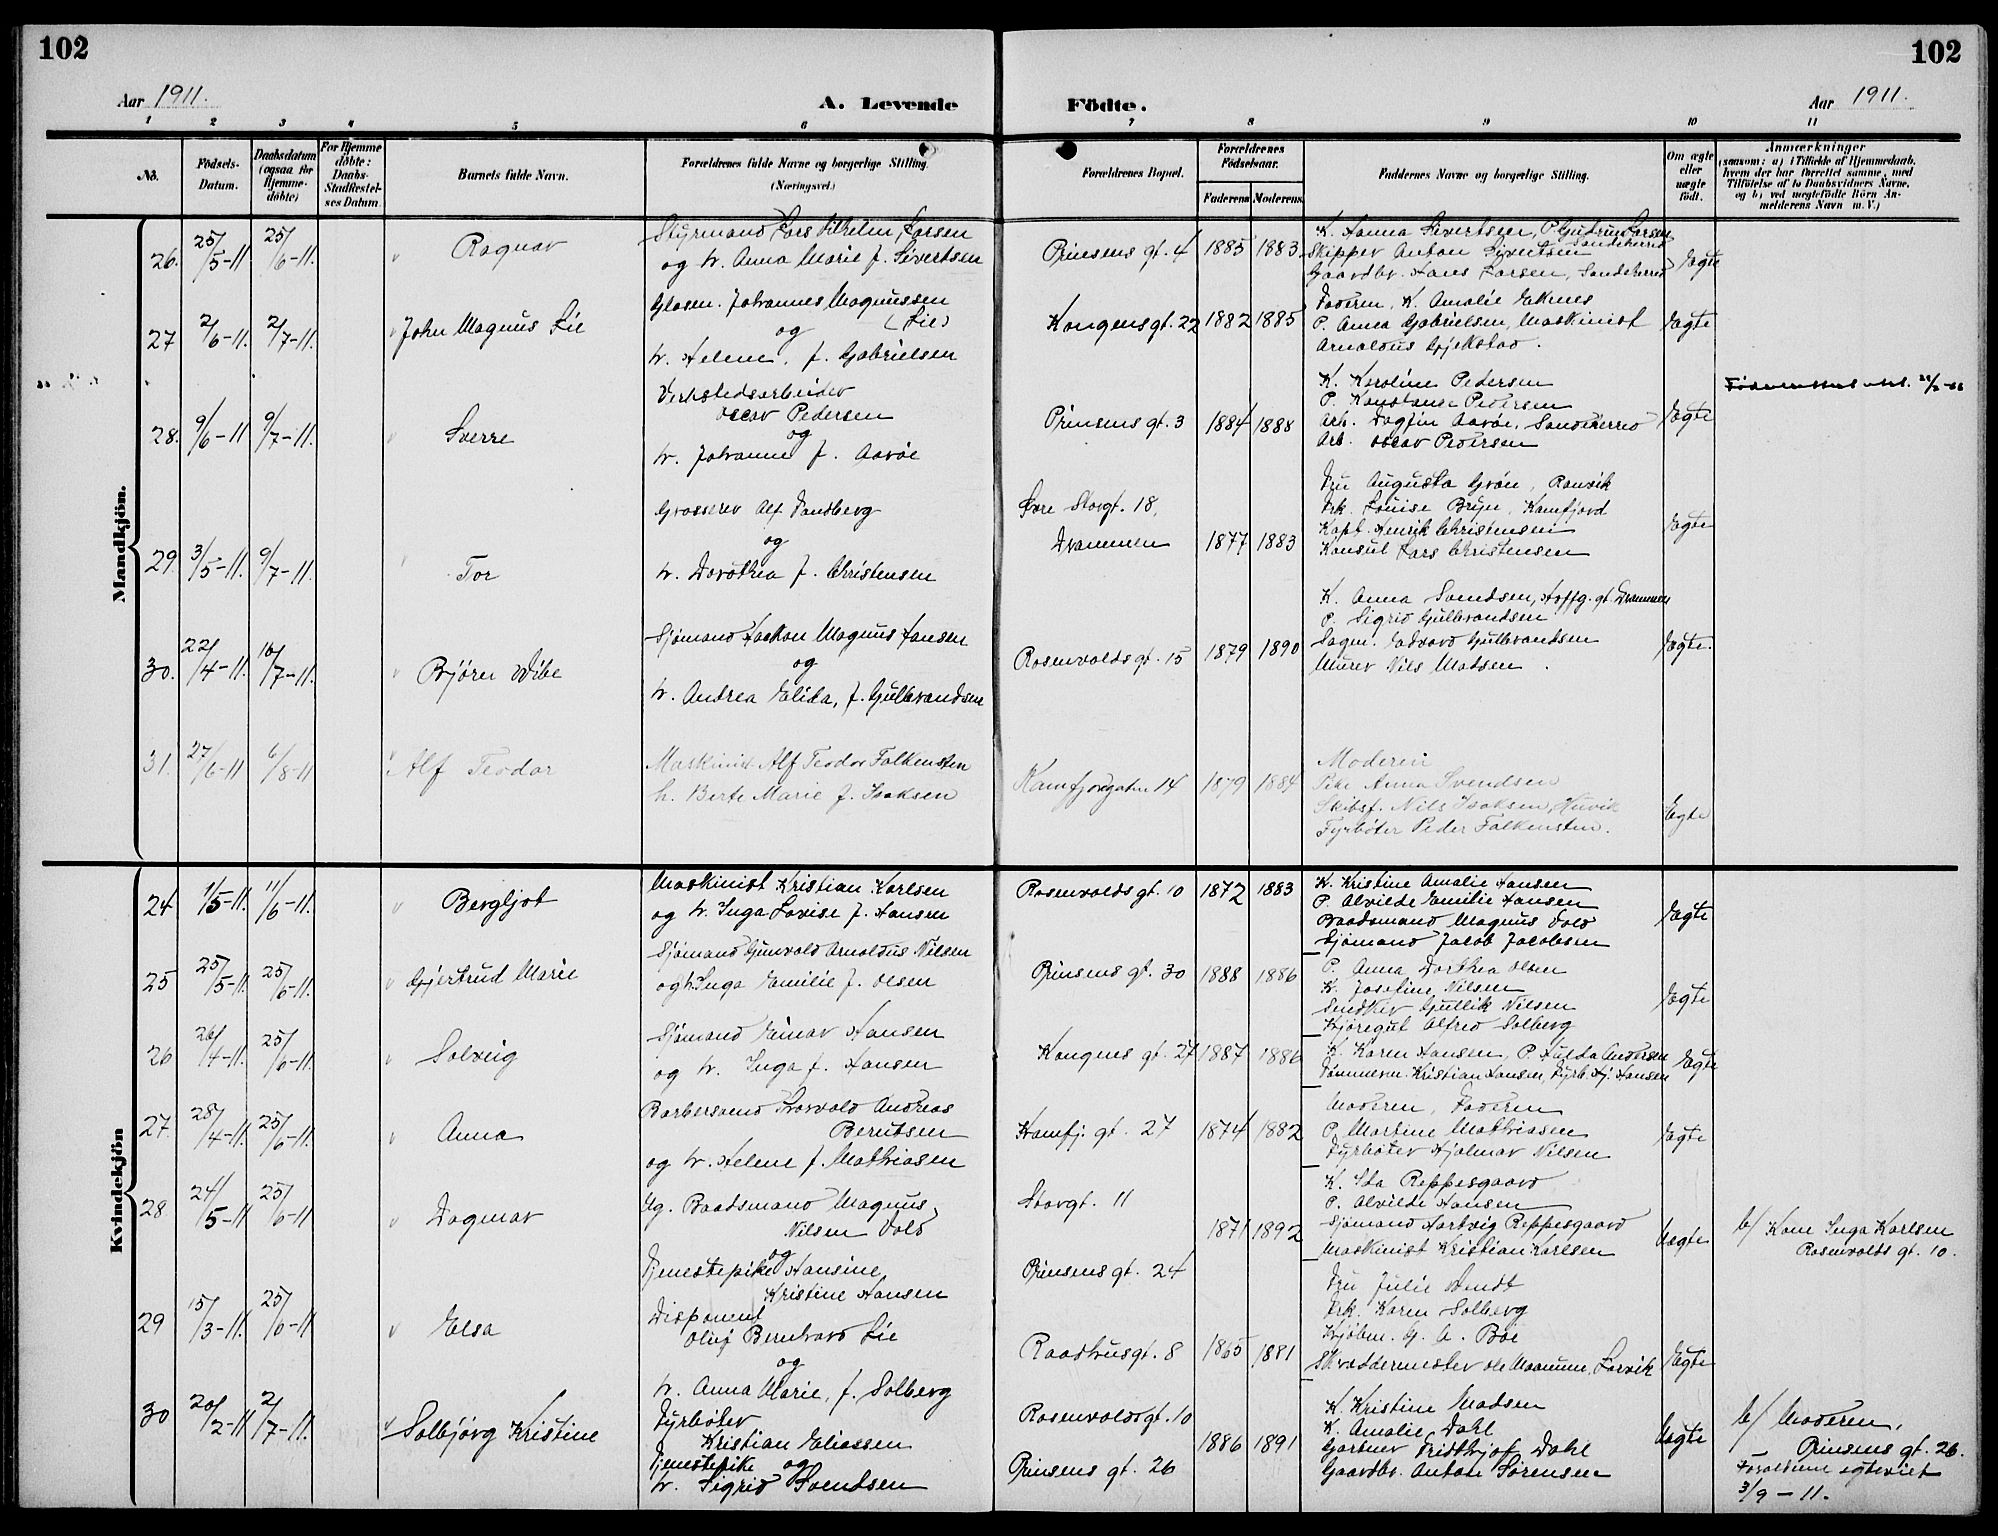 102
102
Aar 1911.
A. Levende
Födte.
Aar 1911.
1 2 3 4 5 6 7 8 9 10 11
No.
Födsels-Datum.
Daabsdatum (ogsaa for Hjemme-döbte)
For Hjemme döbte: Daabs-Stadfæstelses Datum.
Barnets fulde Navn.
Forældrenes fulde Navne og borgerlige Stilling. (Næringsvei.)
Forældrenes Bopæl.
Forældrenes Födselsaar.
Faderens
Moderens
Faddernes Navne og borgerlige Stilling.
Om ægte eller uægte født.
Anmærkninger
(saasom: a) i Tilfælde af Hjemmedaab, hvem der har forrettet samme, med Tilföielse af to Daabsvidners Navne, og b) ved uægtefödte Börn Anmelderens Navn m. V.)
Mandkjön.
26. 25/5-11 25/6-11. Ragnar
Styrmand Lars Vilhelm Larsen
og h. Anna Marie f. Sivertsen
Prinsens gt. 4 1885 1883
K. Hanna Sivertsen, P. Gudrun Larsen
Sandeherred
Skipper Anton Sivertsen
Gaardbr. Hans Larsen, Sandeherred
Ægte
27 2/6-11. 2/7-11. John Magnus Lie
Glasm. Johannes Magnussen
og (Lie)
h. Helene, f. Gabrielsen
Kongensgt. 22 1882 1885
Faderen, K. Amalie Eknes
P. Anna Gabrielsen, Maskinist
Arnoldus Gjekstad.
Ægte
28. 9/6-11 9/7-11. Sverre
Verkstedsarbeider
Oscar Pedersen
og
h. Johanne f. Aarøe
Prinsens gt. 3 1884 1888
K. Karoline Pedersen
P. Konstanse Pedersen
Arb. Dagfin Aarøe, Sandeherred
Arb. Oscar Pedersen
Ægte
29. 3/5-11. 9/7-11. Tor
Grosserer Alf Sandberg
og
h. Dorothea f. Christensen
Øvre Storgt. 18,
Drammen 1877 1883
Fru Augusta Grøn, Ranvik
Frk. Louise Bryn, Kamfjord
Kapt. Henrik Christensen
Konsul Lars Christensen
Ægte
30. 22/4-11. 16/7-11. Bjørn Wibe
Sjømand Haakon Magnus Hansen
og
h. Andrea Elida, f. Gulbrandsen
Rosenvolds gt. 15 1879 1890
K. Anna Svendsen, Hoffg. gt. Drammen
P. Sigrid Gulbrandsen
Sagm. Edvard Gulbrandsen
Murer Nils Madsen.
Ægte.
31. 27/6-11 6/8-11 Alf Teodor
Maskinist Alf Teodor Falkensten
h. Berte Marie f. Isaksen
Kamfjordgaten 14 1879 1884
Moderen
Pike Anna Svendsen
Skibsf. Nils Isaksen,
Fyrbøter Peder Falkensten.
Ægte
Kvindekjön
24 1/5-11. 11/6-11. Bergljot
Maskinist Kristian Karlsen
og h. Inga Lovise f. Hansen
Rosenvolds gt. 10 1872 1883
K. Kristine Amalie Hansen
P. Alvilde Emilie Hansen
Baadsmand Magnus Vold
Sjømand Jacob Jacobsen
Ægte
25 25/5-11. 25/6-11. Gjertrud Marie
Sjømand Gunvald Arnoldus Nilsen
og h. Inga Emilie f. Olsen
Prinsens gt. 30 1888 1886
P. Anna Dorthea Olsen
K. Josefine Nilsen
Snedker Gullik Nilsen
Kjøregut Alfred Solberg
Ægte
26 26/4-11. 25/6-11. Solveig
Sjømand Einar Hansen
og h. Inga f. Hansen
Kongens gt. 27 1887 1886
K. Karen Hansen, P. Hulda Andersen
Tømmerm. Kristian Hansen, Fyrb. Hj. Hansen
Ægte
27. 28/4-11. 25/6-11. Anna
Barbersvend Thorvald Andreas
Berntsen
og h. Helene f. Mathiasen
Kamfj. gt. 27 1874 1882
Moderen, Faderen
P. Martine Mathiasen
Fyrbøter Hjalmar Nilsen
Ægte
28 24/5-11 25/6-11 Dagmar
Ug. Baadsmand Magnus
Nilsen Vold
og
Tjenestepike Hansine
Kristine Hansen
Storgt. 11
Prinsens gt. 24
1871 1892
K. Ida Reppesgaard
P. Alvilde Hansen
Sjømand Hartvig Reppesgaard
Maskinist Kristian Karlsen
Uægte
b/ Kone Inga Karlsen
Rosenvolds gt. 10.
29 15/3-11. 25/6-11 Elsa
Disponent
Oluf Bernhard Lie
og
h. Anna Marie, f. Solberg
Raadhusgt. 8 1865 1881
Fru Julie Arndt
Frk. Karen Solberg
Kjøbm. G. A. Bøe
Skræddermester Ole Maanum, Larvik
Ægte
30 20/2-11 2/7-11. Solbjørg Kristine
Fyrbøter
Kristian Eliassen
Tjenestepike og
h. Sigrid Svendsen
Rosenvoldsgt. 10
Prinsens gt. 26
1886 1891
K. Kristine Madsen
K. Amalie Dahl
Gartner Fridthjof Dahl
Gaardbr. Anton Sørensen
Uægte
b/ Moderen,
Prinsens gt. 26.
Forældrene egteviet
3/9-11.